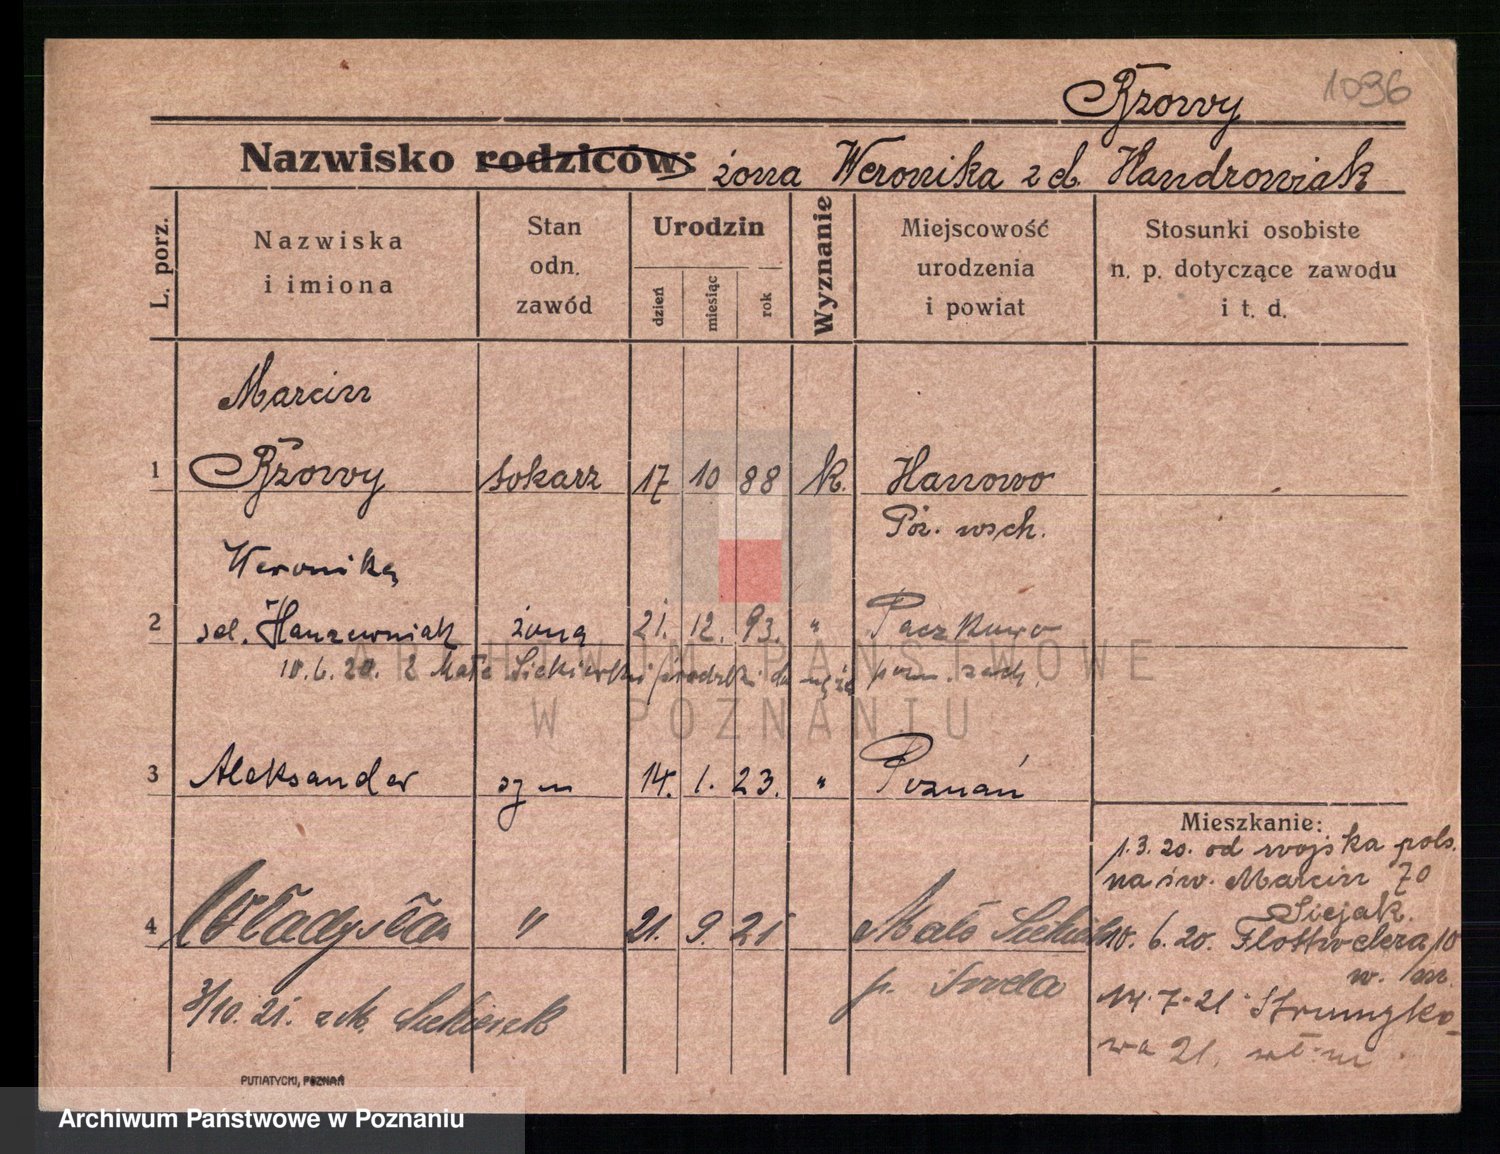 Bzowy 1096
Nazwisko rodziców: żona Weronika z d. Handrowiak
L. porz.
Nazwiska
i imiona
Stan
odn.
zawód
Urodzin
dzień
miesiąc
rok
Wyznanie
Miejscowość
urodzenia
i powiat
Stosunki osobiste
n. p. dotyczące zawodu
i t. d.
Marcin
1 Bzowy tokarz 17 10 88 k. Hanowo
Poz. wsch.
Weronika
2 żona 21. 12. 93. " Paczkowo
10.6.20. z Małe Siekierki środzki do męża
3 Aleksander syn 14. 1. 23. " Poznań
Mieszkanie:
1.3.20. od wojska pols.
na św. Marcin 70
Siejak.
4 Władysław " 21. 9. 21 Małe
10. 6. 20. 10
p. Środa
w. m.
3/10. 21.
14.7.21 Strumyko-
wa 21. wł. m.
PUTIATYCKI, POZNAŃ
ARCHIWUM PAŃSTWOWE
W POZNANIU
Archiwum Państwowe w Poznaniu